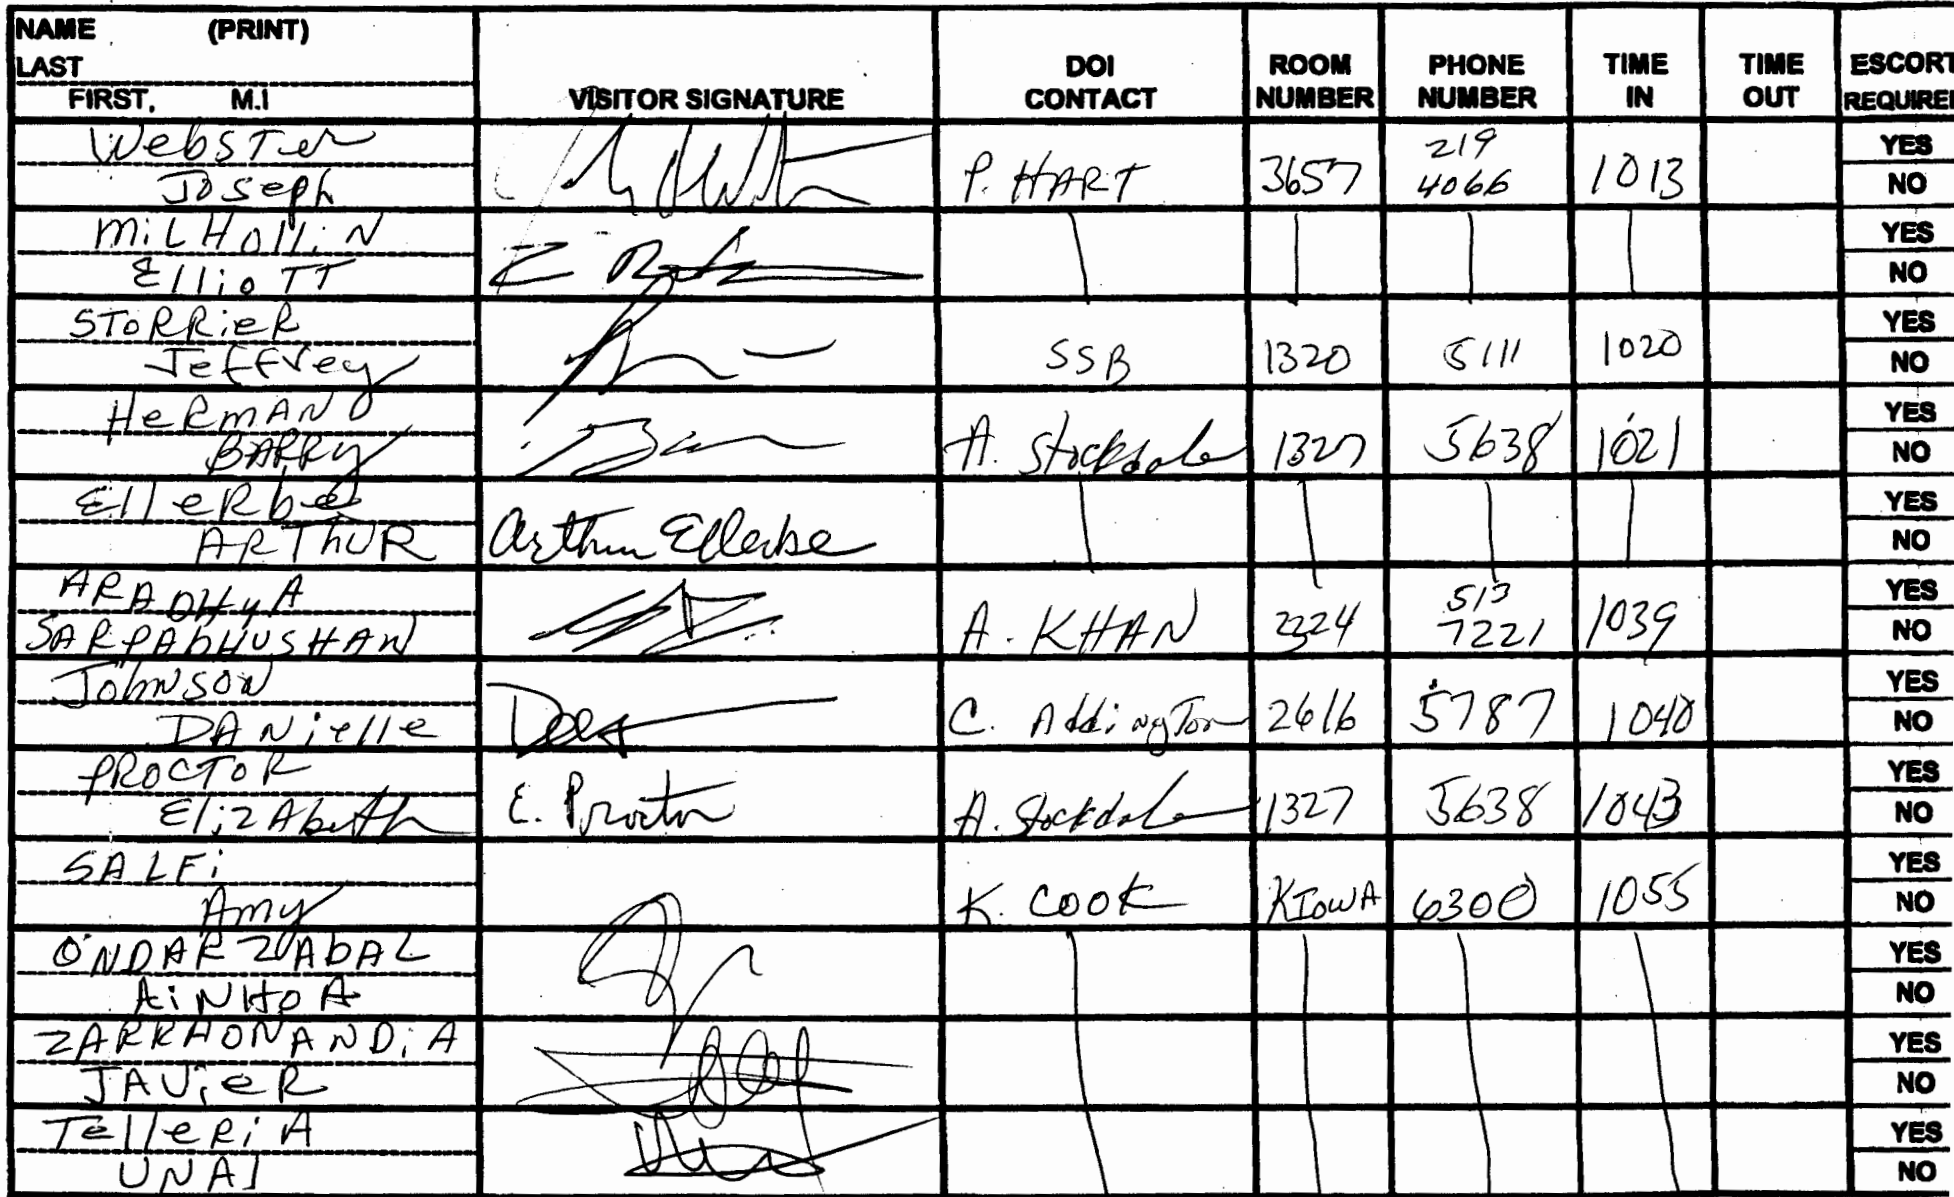 NAME (PRINT)
LAST
FIRST, M.I
VISITOR SIGNATURE
DOI CONTACT
ROOM NUMBER
PHONE NUMBER
TIME IN
TIME OUT
ESCORT REQUIRED
Webster
Joseph
P. HART 3657 219 4066 1013
YES
NO
MiLHolliN
EllioTT
YES
NO
SToRRieR
Jeffrey
SSB 1320 5111 1020
YES
NO
HeRMAN
BARRy
A. Stockdale 1327 5638 1021
YES
NO
ElleRbee
ARThUR
Arthur Ellerbe
YES
NO
ARADHyA
SARPAbHUSHAN
A. KHAN 2324 513 7221 1039
YES
NO
JohNSoN
DANielle
C. AddiNgToN 2616 5787 1040
YES
NO
PROCToR
ElizAbeth
E. Proctor
A. Stockdale 1327 5638 1043
YES
NO
SALFi
Amy
K. COOK KIOWA 6300 1055
YES
NO
ONDARZAbAL
AiNHOA
YES
NO
ZARRAONANDiA
JAVieR
YES
NO
TelleRiA
UNAI
YES
NO